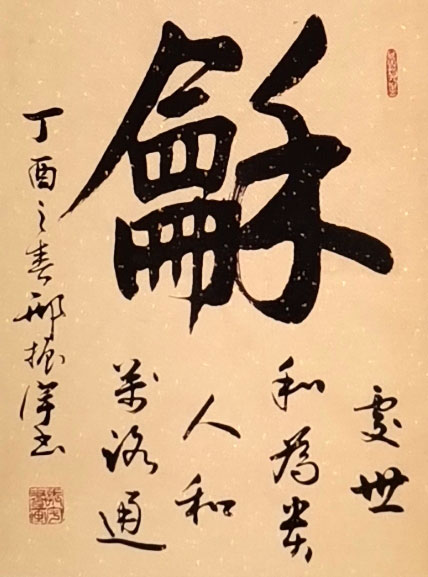 龢
處世
和為貴
人和
萬路通
丁酉之春邢振書